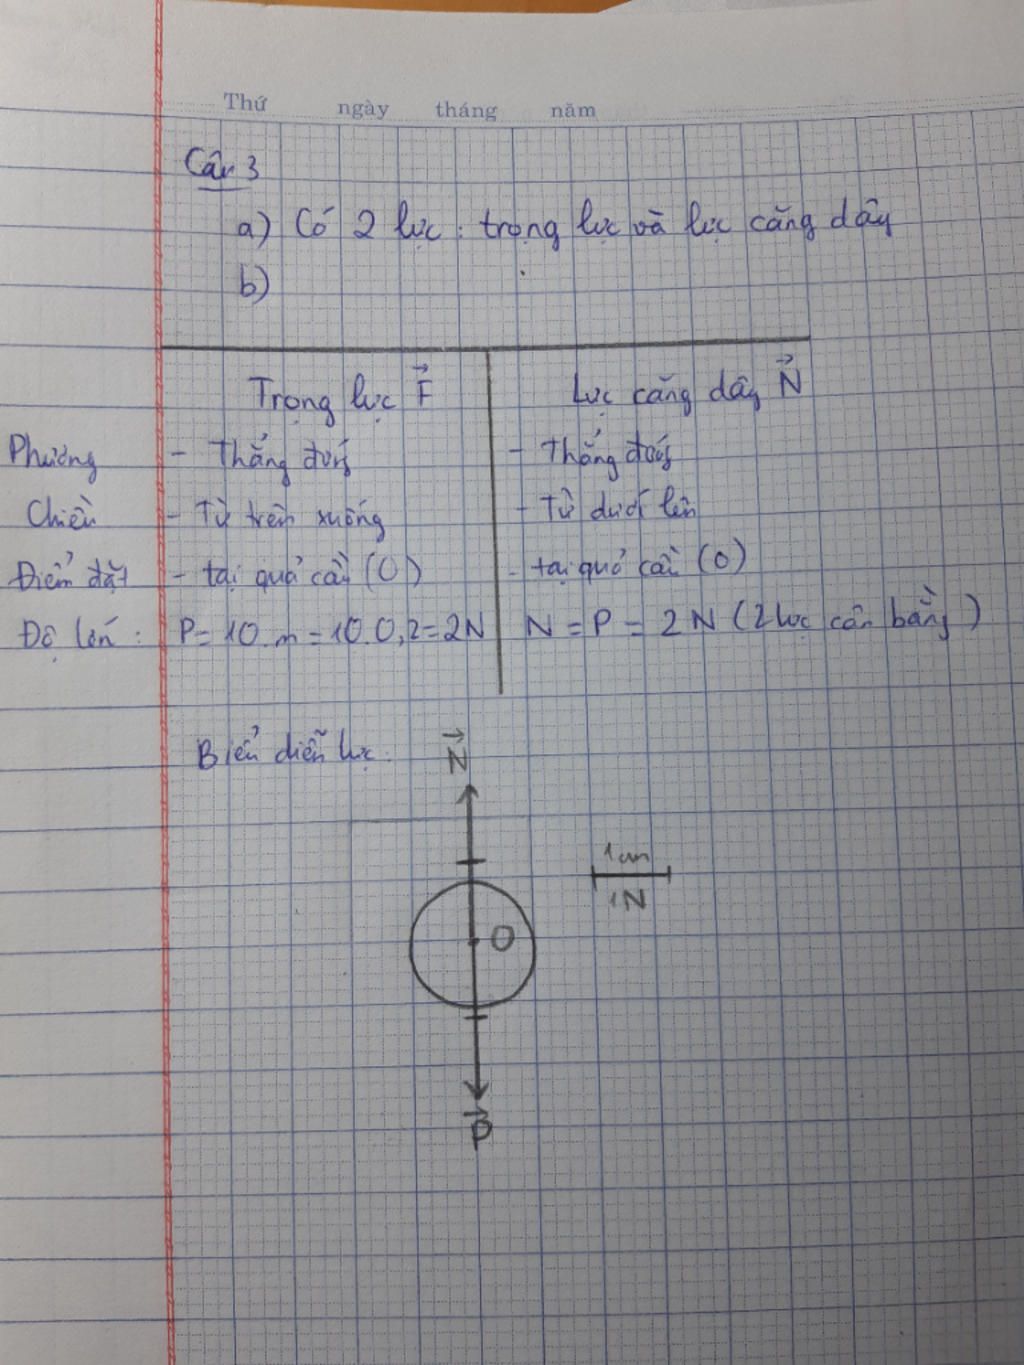 Thứ ngày tháng năm
Câu 3
a) Có 2 lực : trọng lực và lực căng dây
b)
Trọng lực F⃗ Lực căng dây N⃗
Phương - Thẳng đứng - Thẳng đứng
Chiều - Từ trên xuống - Từ dưới lên
Điểm đặt - tại quả cầu (O) - tại quả cầu (O)
Độ lớn : P = 10.m = 10.0,2 = 2N N = P = 2N (2 lực cân bằng)
Biểu diễn lực :
N⃗
1cm
1N
O
P⃗